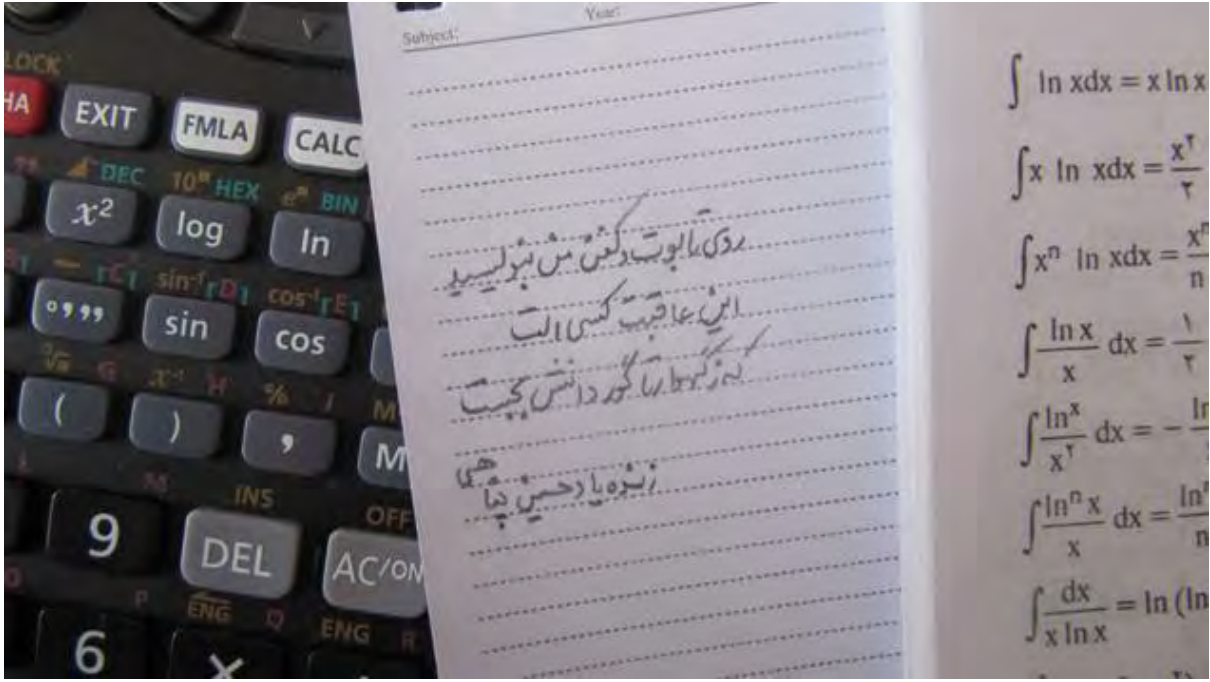 LOCK
HA EXIT FMLA CALC
DEC 10ˣ HEX eˣ BIN
x² log ln
sin⁻¹ D cos⁻¹ E
° ’ ’’ sin cos
³√ G x⁻¹ H % I M
( ) , M
L M INS OFF
9 DEL AC/ON
P ENG Q ENG R
6 ×
Year:
Subject:
روی تابوت و کفن من بنویسید
این عاقبت کسی است
که ز گهوارتا گور دانش بجست
زنده یاد حسین پناهی
∫ ln xdx = x ln x
∫x ln xdx = x۲/۲
∫xⁿ ln xdx = xⁿ/n
∫ ln x/x dx = ۱/۲
∫ lnˣ/x۲ dx = − ln
∫ lnⁿ x/x dx = lnⁿ/n
∫ dx/x ln x = ln (ln